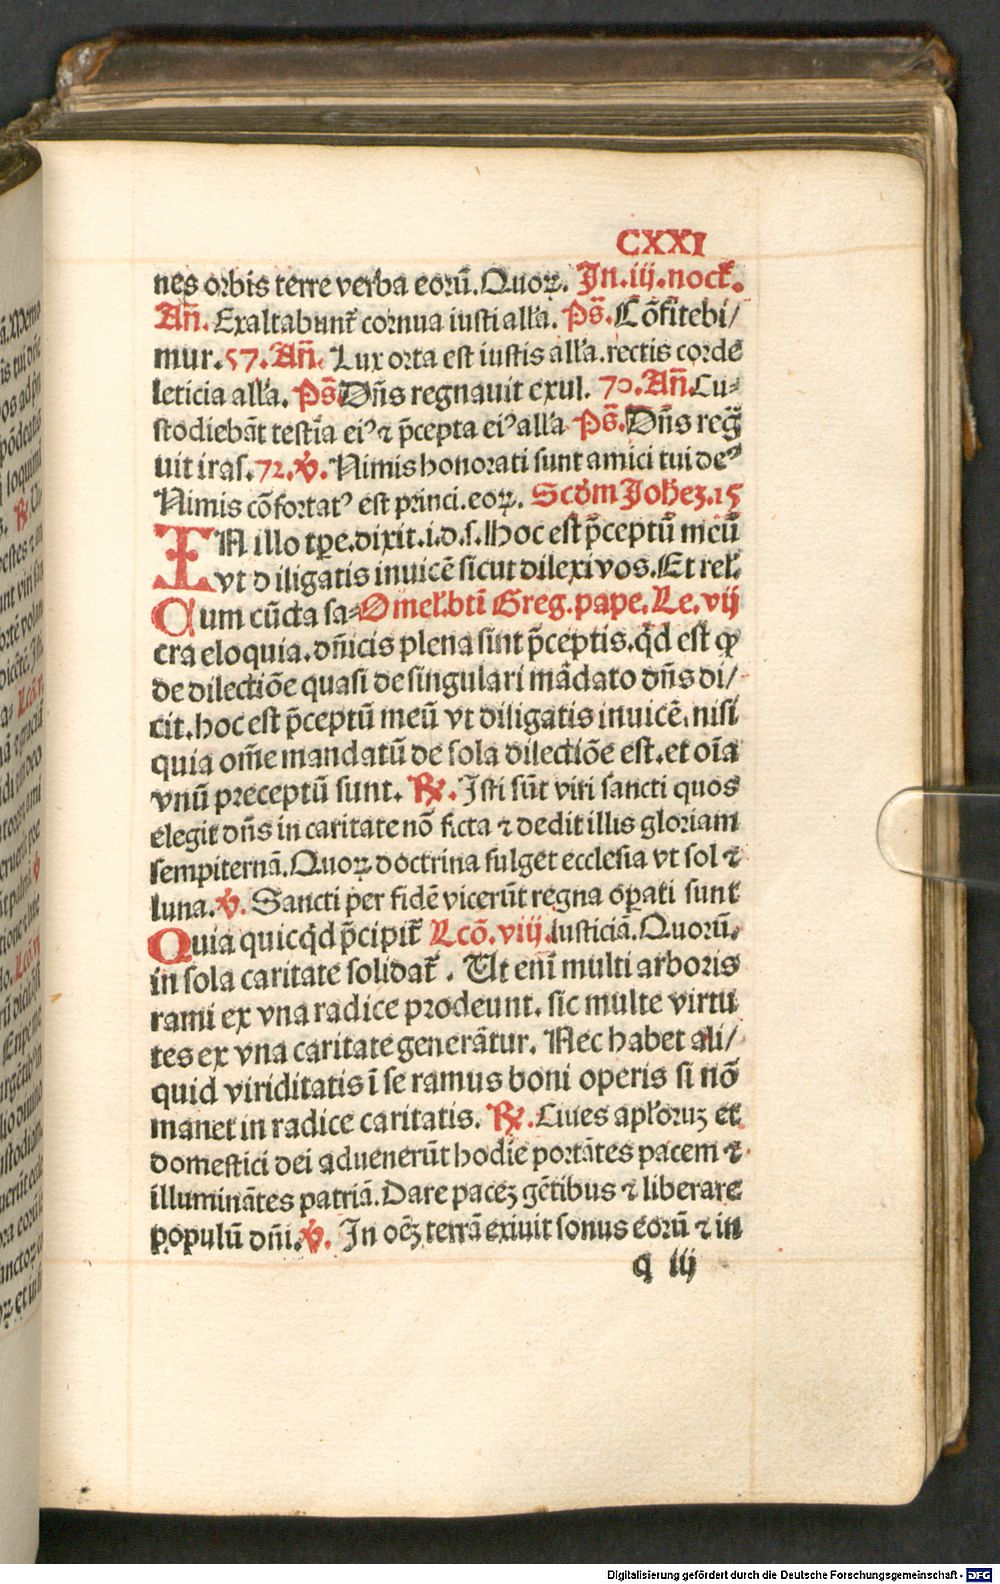 CXXI
nes orbis terre verba eorũ. Quoꝝ. In. iij. noct̃.
Añ. Exaltabunt̃ cornua iusti all'a. Ps̃. Cõfitebi/
mur. 57. Añ. Lux orta est iustis all'a. rectis corde
leticia all'a. Ps̃ Dñs regnauit exul. 70. Añ. Cu-
stodiebãt testĩa eiꝰ ⁊ p̃cepta eiꝰ all'a Ps̃. Dñs reg̃
uit iras. 72. ℣. Nimis honorati sunt amici tui deꝰ
Nimis cõfortatꝰ est princi. eoꝝ. Scd̃m Joħeʒ. 15
IN illo tꝑe. dixit. i. d. s. Hoc est p̃ceptũ meũ
vt diligatis inuicẽ sicut dilexi vos. Et rel̃.
Cum cũcta sa- Omel. bt̃i Greg. pape. Le. vij
cra eloquia. dñicis plena sint p̃ceptis. q̃d est ꝙ
de dilectiõe quasi de singulari mãdato dñs di/
cit. hoc est p̃ceptũ meũ vt diligatis inuicẽ. nisi
quia om̃e mandatũ de sola dilectiõe est. et oĩa
vnũ preceptũ sunt. ℟. Isti sũt viri sancti quos
elegit dñs in caritate nõ ficta ⁊ dedit illis gloriam
sempiternã. Quoꝝ doctrina fulget ecclesia vt sol ⁊
luna. ℣. Sancti per fidẽ vicerũt regna oꝑati sunt
Quia quicq̃d p̃cipit̃ Lcõ. viij. iusticiã. Quorũ.
in sola caritate solidat̃. Ut enĩ multi arboris
rami ex vna radice prodeunt. sic multe virtu
tes ex vna caritate generãtur. Nec habet ali/
quid viriditatis ĩ se ramus boni operis si nõ
manet in radice caritatis. ℟. Ciues apl̃oruʒ et
domestici dei aduenerũt hodie portãtes pacem ⁊
illuminãtes patriã. Dare paceʒ gẽtibus ⁊ liberare
populũ dñi. ℣. In oẽʒ terrã exiuit sonus eorũ ⁊ in
q iij
Digitalisierung gefördert durch die Deutsche Forschungsgemeinschaft - DFG